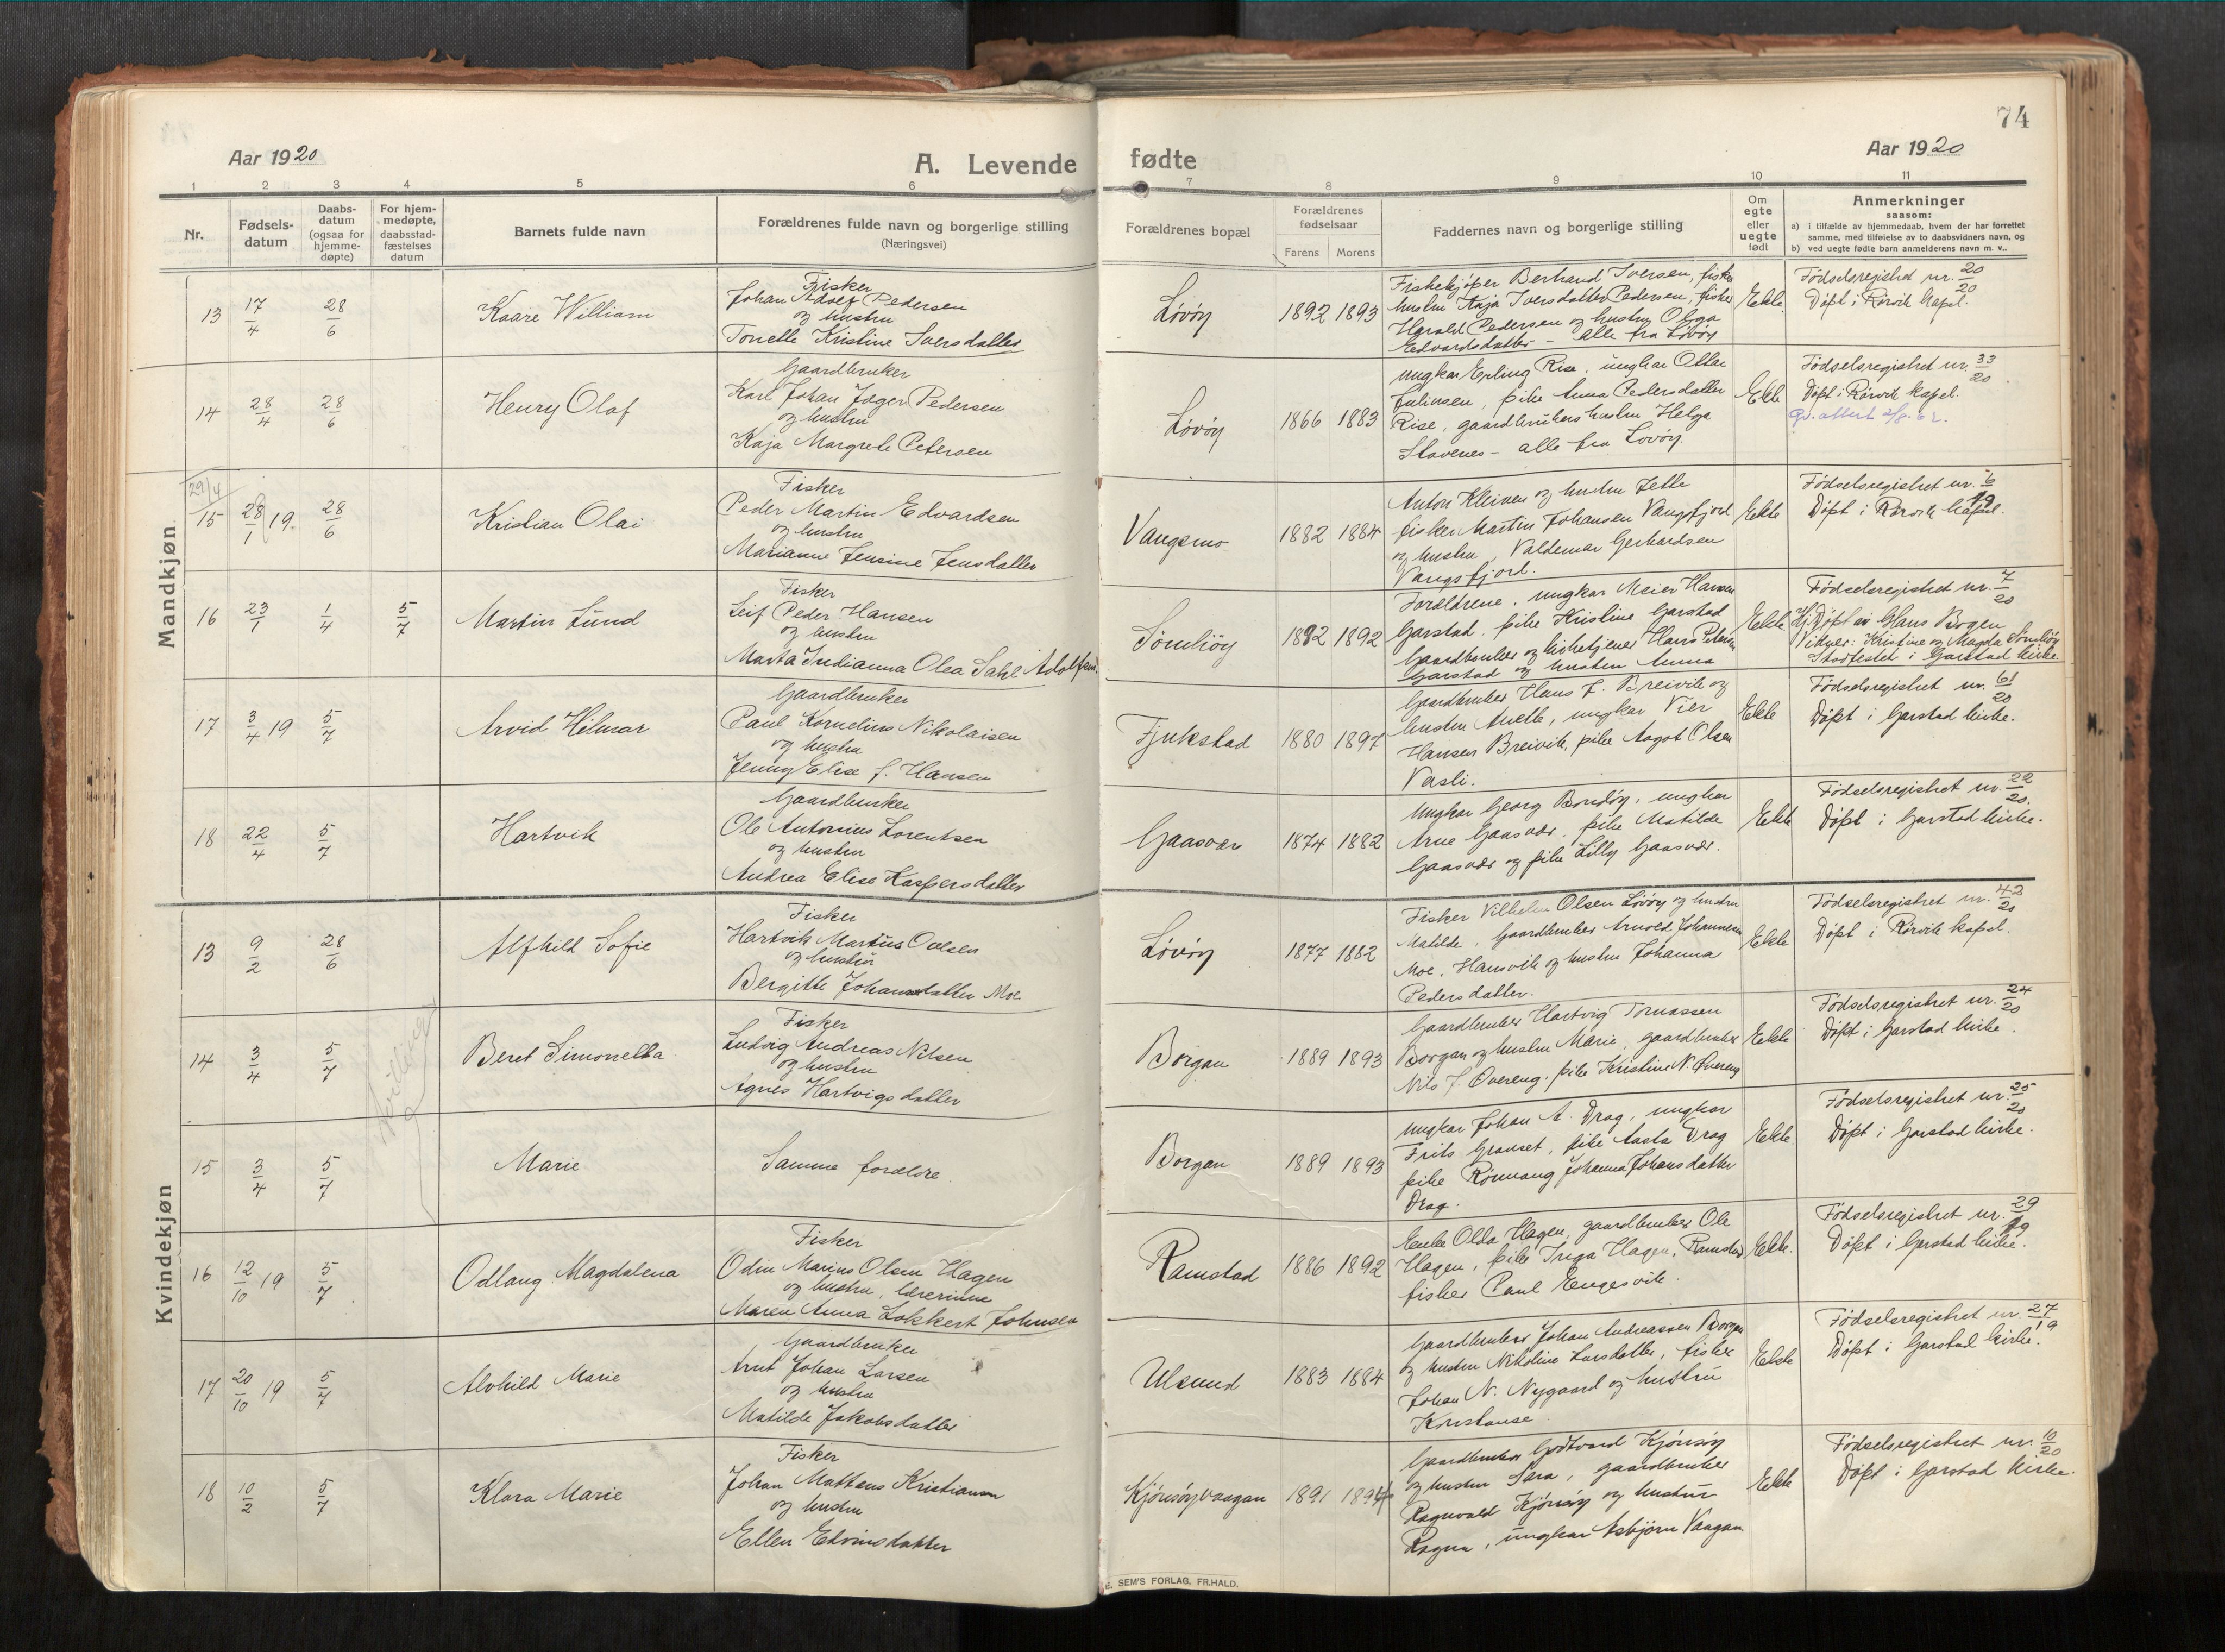 74
Aar 1920
A. Levende fødte
Aar 1920
1 2 3 4 5 6 7 8 9 10 11
Nr.
Fødsels-
datum
Daabs-
datum
(ogsaa for
hjemme-
døpte)
For hjem-
medøpte,
daabsstad-
fæstelses
datum
Barnets fulde navn
Forældrenes fulde navn og borgerlige stilling
(Næringsvei)
Forældrenes bopæl
Forældrenes
fødselsaar
Farens Morens
Faddernes navn og borgerlige stilling
Om
egte
eller
uegte
født
Anmerkninger
saasom:
a) i tilfælde av hjemmedaab, hvem der har forrettet
samme, med tilføielse av to daabsvidners navn, og
b) ved uegte fødte barn anmelderens navn m. v..
Mandkjøn
13 17/4 28/6 Kaare William
Fisker
Johan Adolf Pedersen
og hustru
Tonette Kristine Iversdatter
Løvøy 1892 1893
Fiskekjøper Bernhard Iversen, fisker
hustru Kaja Iversdatter Pedersen, fisker
Harald Pedersen og hustru Olga
Edvardsdatter - alle fra Løvøy
Ekte
Fødselsregistret nr. 20/20
Døpt i Rørvik kapel.
14 28/4 28/6 Henry Olaf
Gaardbruker
Karl Johan Jæger Pedersen
og hustru
Kaja Margrete Petersen
Løvøy 1866 1883
Ungkar Erling Rise, ungkar Ottar
Julinsen, pike Anna Pedersdatter
Rise, gaardbrukers hustru Helga
Stavenes - alle fra Løvøy
Ekte
Fødselsregistret nr. 33/20
Døpt i Rørvik kapel.
29/4
15 28/1 19. 28/6 Kristian Olai
Fisker
Peder Martin Edvardsen
og hustru
Marianne Jensine Jensdatter
Vangsmo 1882 1884
Anton Kleiven og hustru Jette
fisker Martin Johansen Vangsfjord
og hustru, Valdemar Gerhardsen
Vangsfjord.
Ekte
Fødselsregistret nr. 6/19
Døpt i Rørvik kapel.
16 23/1 1/4 5/7 Martin Lund
Fisker
Leif Peder Hansen
og hustru
Marta Indianna Olea Dahl Adolfsen.
Sømliøy 1892 1892
Forældrene, ungkar Meier Hansen
Garstad, pike Kristine Garstad
Gaardbruker og kirketjener Hans Petersen
Garstad og hustru Anna
Ekte
Fødselsregistret nr. 7/20
Hj.Døpt av Hans Bogen
Vidner: Kristine og Magda Sømliøy
Stadfestet i Garstad kirke
17 3/4 19 5/7 Arvid Hilmar
Gaardbruker
Paul Kornelius Nikolaisen
og hustru
Jenny Elise f. Hansen
Fjukstad 1880 1897
Gaardbruker Hans J. Breivik og
hustru Anette, ungkar Vier
Hansen Breivik, pike Aagot Olsen
Vasli.
Ekte
Fødselsregistret nr. 61/20
Døpt i Garstad kirke.
18 22/4 5/7 Hartvik
Gaardbruker
Ole Antonius Lorentsen
og hustru
Andrea Elise Kaspersdatter
Gaasvær 1874 1882
Ungkar Georg Bondøy, ungkar
Arne Gaasvær, pike Matilde
Gaasvær og pike Lilly Gaasvær.
Ekte
Fødselsregistret nr. 22/20.
Døpt i Garstad kirke.
Kvindekjøn
13 9/2 28/6 Alfhild Sofie
Fisker
Hartvik Martius Ovesen
og hustru
Bergitte Johannesdatter Moe
Løvøy 1877 1882
Fisker Vilhelm Olsen Løvøy og hustru
Matilde, Gaardbruker Arnold Johannesen
Moe, Hansvik og hustru Johanna
Pedersdatter.
Ekte
Fødselsregistret nr. 42/20
Døpt i Rørvik kapel.
Tvillinger
14 3/4 5/7 Beret Simonetta
Fisker
Ludvig Andreas Nilsen
og hustru
Agnes Hartvigsdatter
Borgan 1889 1893
Gaardbruker Hartvig Tomassen
Borgan og hustru Marie, gaardbruker
Nils J. Overeng, pike Kristine N. Overeng
Ekte
Fødselsregistret nr. 24/20
Døpt i Garstad kirke.
15 3/4 5/7 Marie
Samme forældre.
Borgan 1889 1893
Ungkar Johan A. Drag, ungkar
Frits Granset, pike Aasta Drag
pike Rönnaug Johanna Johansdatter
Drag.
Ekte.
Fødselsregistret nr. 25/20
Døpt i Garstad kirke.
16 12/10 19 5/7 Odlaug Magdalena
Fisker
Odin Marius Olsen Hagen
og hustru, lærerinne
Maren Anna Lokkert Johnsen
Ramstad 1886 1892
Enke Olda Hagen, gaardbruker Ole
Hagen, pike Inga Hagen, Ramstad
fisker Paul Engesvik.
Ekte.
Fødselsregistret nr. 29/19
Døpt i Garstad kirke.
17 20/10 19 5/7 Alvhild Marie
Gaardbruker
Arnt Johan Larsen
og hustru
Matilde Jakobsdatter
Ulsund 1883 1884
Gaardbruker Johan Andreassen Borgan
og hustru Nikoline Larsdatter, fisker
Johan N. Nygaard og hustru
Konstanse.
Ekte
Fødselsregistret nr. 27/19
Døpt i Garstad kirke.
18 10/2 5/7 Klara Marie
Fisker
Johan Mattæus Kristiansen
og hustru
Ellen Edvinsdatter
Kjönsøyvaagan 1891 1894
Gaardbruker Godtvard Kjönsøy
og hustru Sara, gaardbruker
Ragnvald Kjönsøy og hustru
Ragna, ungkar Asbjørn Vaagan
Ekte
Fødselsregistret nr. 10/20
Døpt i Garstad kirke.
E. SEM'S FORLAG, FR.HALD.